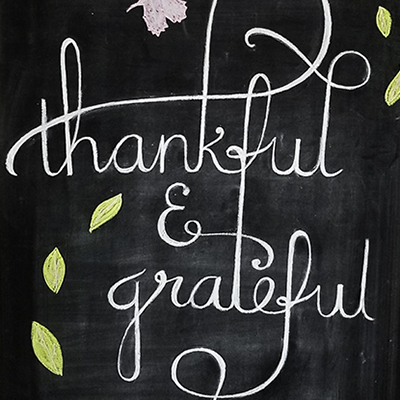 thankful
&
grateful